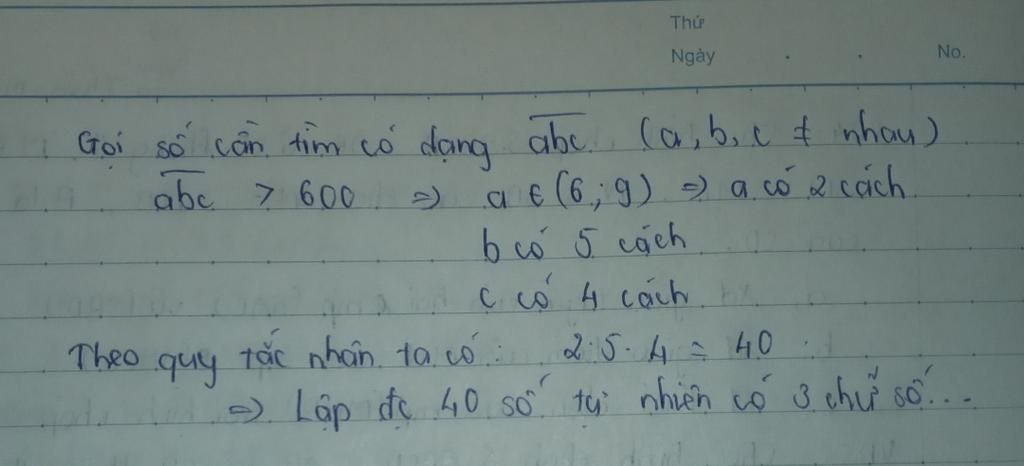 Thứ
Ngày . . No.
Gọi số cần tìm có dạng abc (a, b, c ≠ nhau)
abc > 600 => a ∈ (6; 9) => a có 2 cách
b có 5 cách
c có 4 cách
Theo quy tắc nhân ta có: 2.5.4 = 40
=> Lập đc 40 số tự nhiên có 3 chữ số...